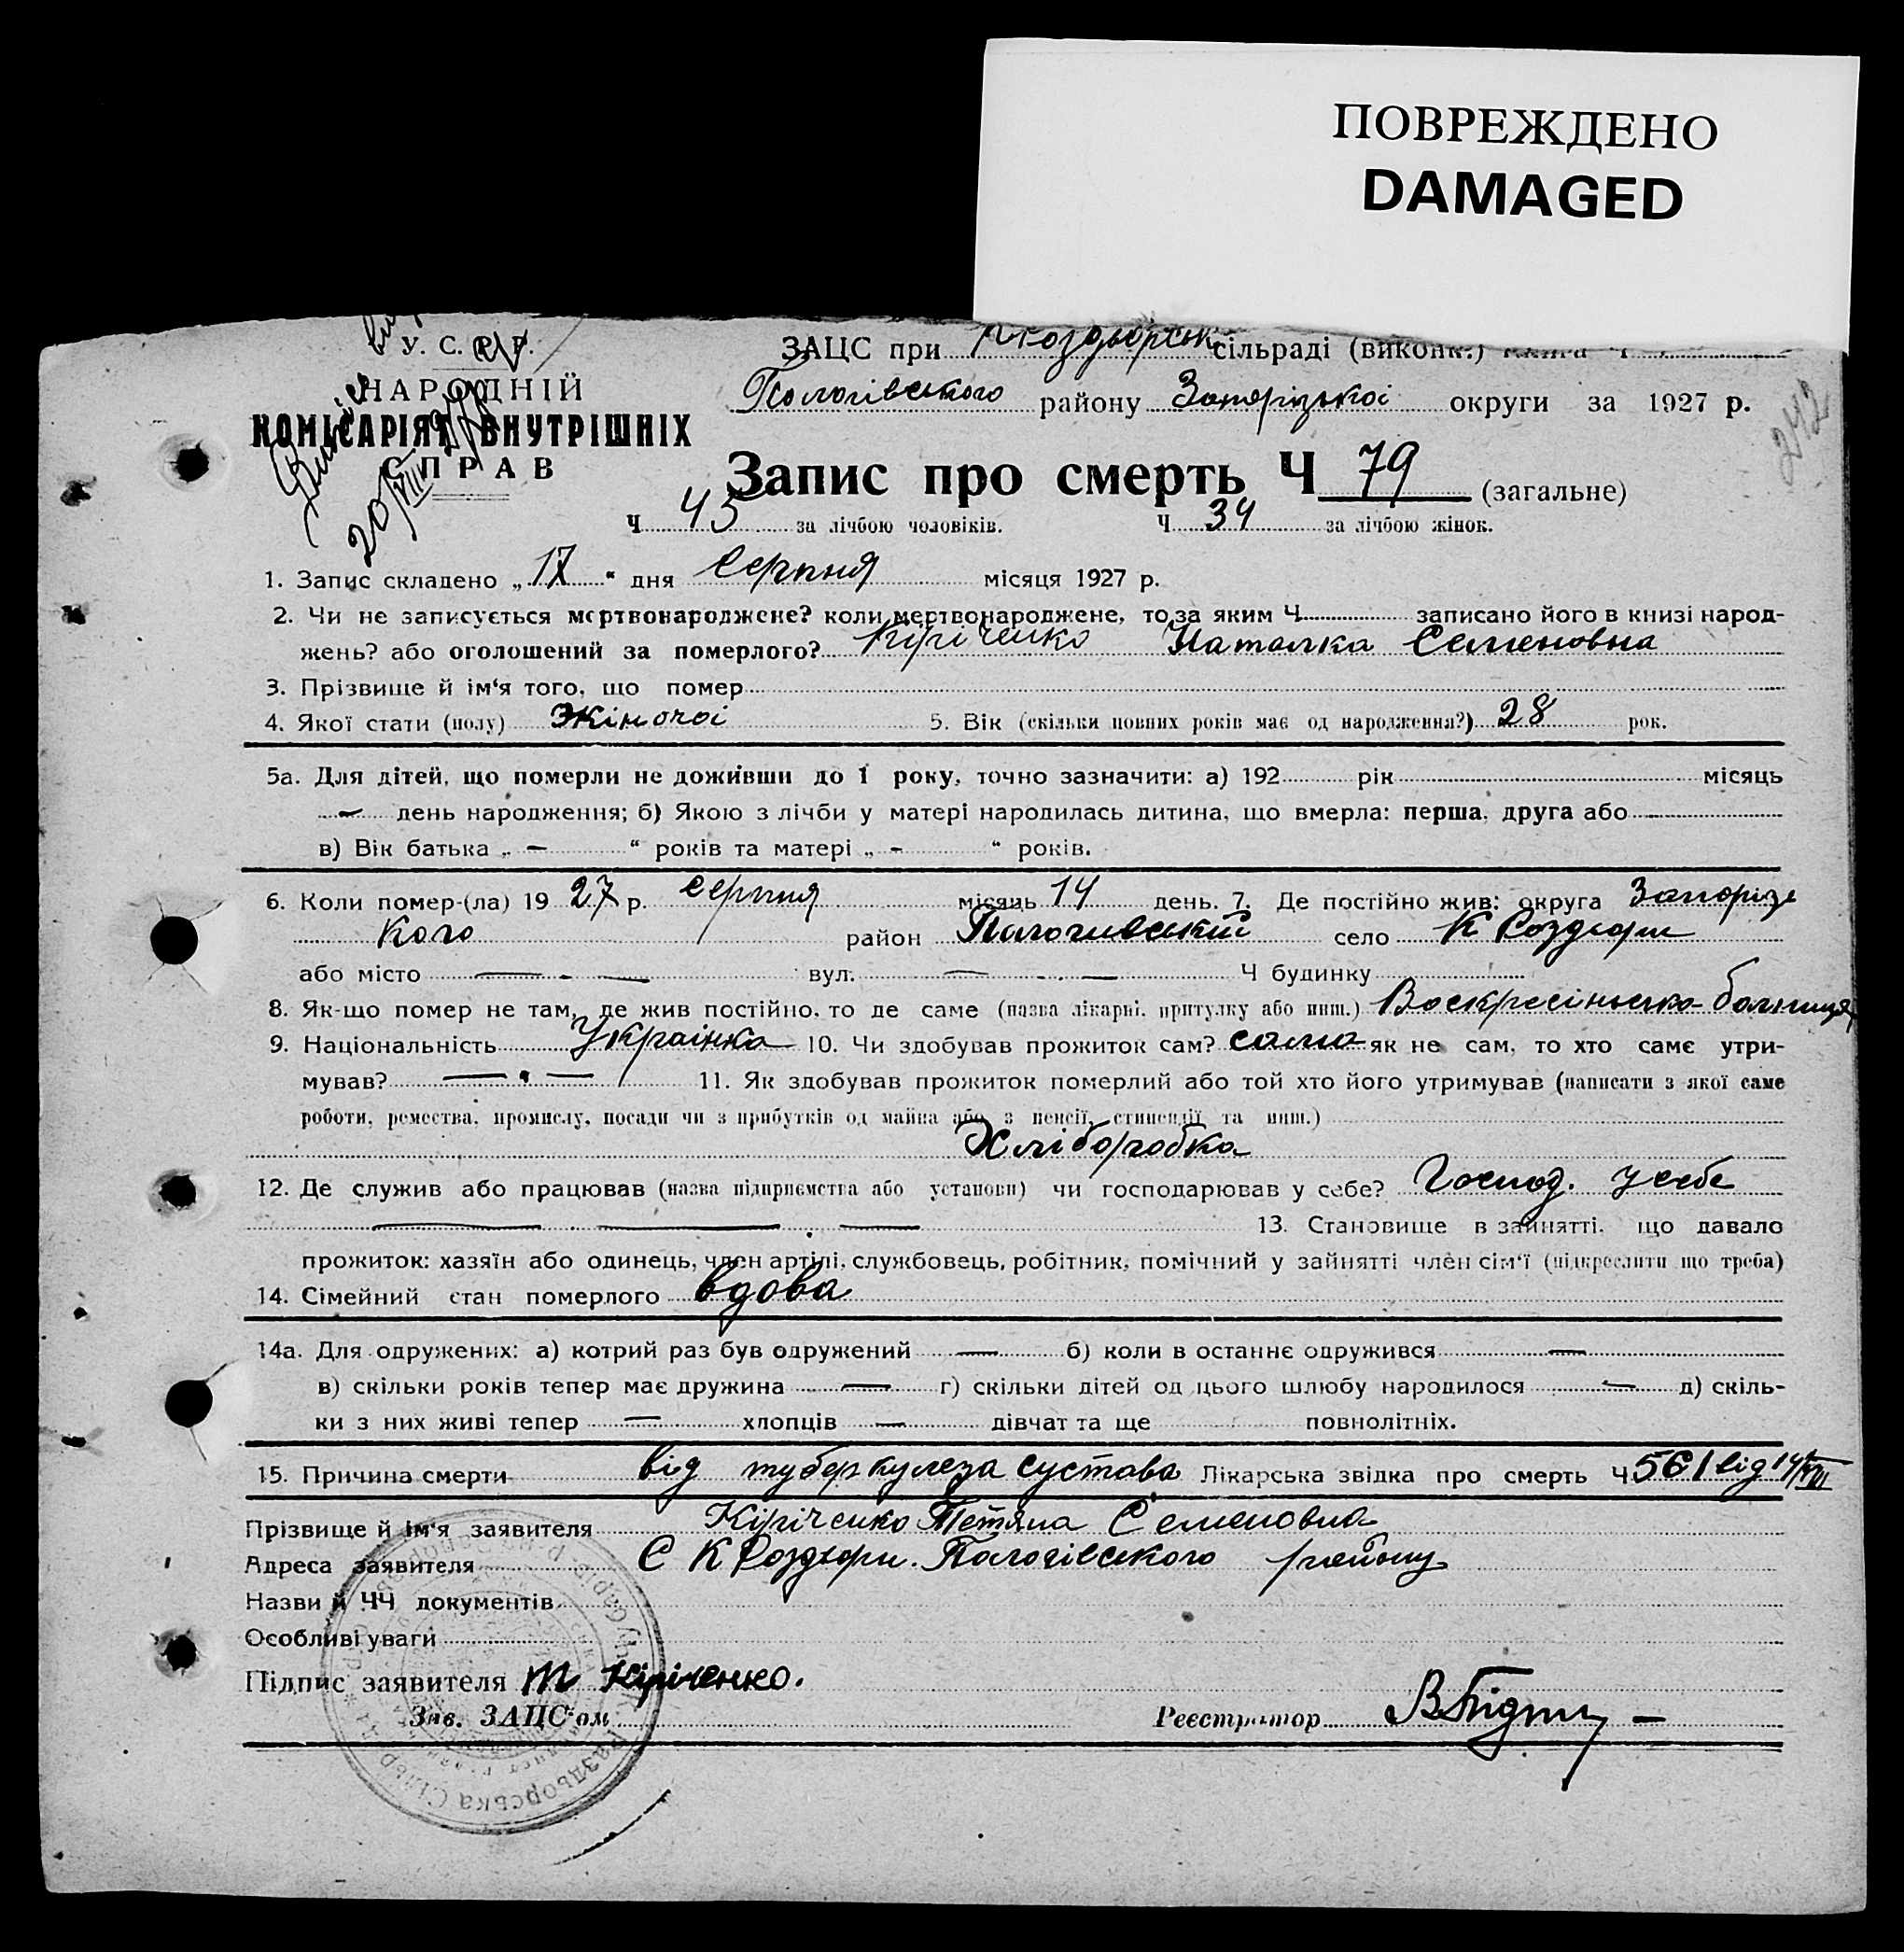 ПОВРЕЖДЕНО
DAMAGED
У. С. Р. Р.
НАРОДНІЙ
КОМІСАРІЯТ ВНУТРІШНІХ
СПРАВ
20/VIII
ЗАЦС при К Роздьорськ сільраді (виконк.)
Пологівського району Запорізькоі округи за 1927 р.
242
Запис про смерть Ч 79 (загальне)
Ч 45 за лічбою чоловіків. Ч 34 за лічбою жінок.
1. Запис складено „ 17 “ дня Серпня місяця 1927 р.
2. Чи не записується мертвонароджене? коли мертвонароджене, то за яким Ч записано його в книзі народ-
жень? або оголошений за померлого? Кіріченко Наталка Семеновна
3. Прізвище й ім‘я того, що помер
4. Якої стати (полу) Жіночоі 5. Вік (скільки повних років має од народження?) 28 рок.
5а. Для дітей, що померли не доживши до 1 року, точно зазначити: а) 192 рік місяць
— день народження; б) Якою з лічби у матері народилась дитина, що вмерла: перша, друга або —
в) Вік батька „ — “ років та матері „ - “ років.
6. Коли помер-(ла) 19 27 р. Серпня місяць 14 день. 7. Де постійно жив: округа Запорізь
кого район Пологивський село К Роздьори
або місто — . — вул. — . — Ч будинку
8. Як-що помер не там, де жив постійно, то де саме (назва лікарні, притулку або инш.) Воскресіньська болниця
9. Національність Украінка 10. Чи здобував прожиток сам? сама як не сам, то хто саме утри-
мував? — . — 11. Як здобував прожиток померлий або той хто його утримував (написати з якої саме
роботи, ремества, промислу, посади чи з прибутків од майна або з пенсії, стипендії та инш.)
Хліборобка
12. Де служив або працював (назва підприємства або установи) чи господарював у себе? Господ. у себе
— — — 13. Становище в зайнятті, що давало
прожиток: хазяїн або одинець, член артілі, службовець, робітник, помічний у зайнятті член сім‘ї (підкреслити що треба)
14. Сімейний стан померлого вдова
14а. Для одружених: а) котрий раз був одружений — б) коли в останнє одружився —
в) скільки років тепер має дружина — г) скільки дітей од цього шлюбу народилося — д) скіль-
ки з них живі тепер — хлопців — дівчат та ще повнолітніх.
15. Причина смерти від туберкулеза сустава Лікарська звідка про смерть Ч. 561 від 14/VIII
Прізвище й ім‘я заявителя Кіріченко Тетяна Семеновна
Адреса заявителя С К Роздьори. Пологівського району
Назви й ЧЧ документів
Особливі уваги
Підпис заявителя Т Кіріченко.
Зав. ЗАЦС‘ом Реєстратор